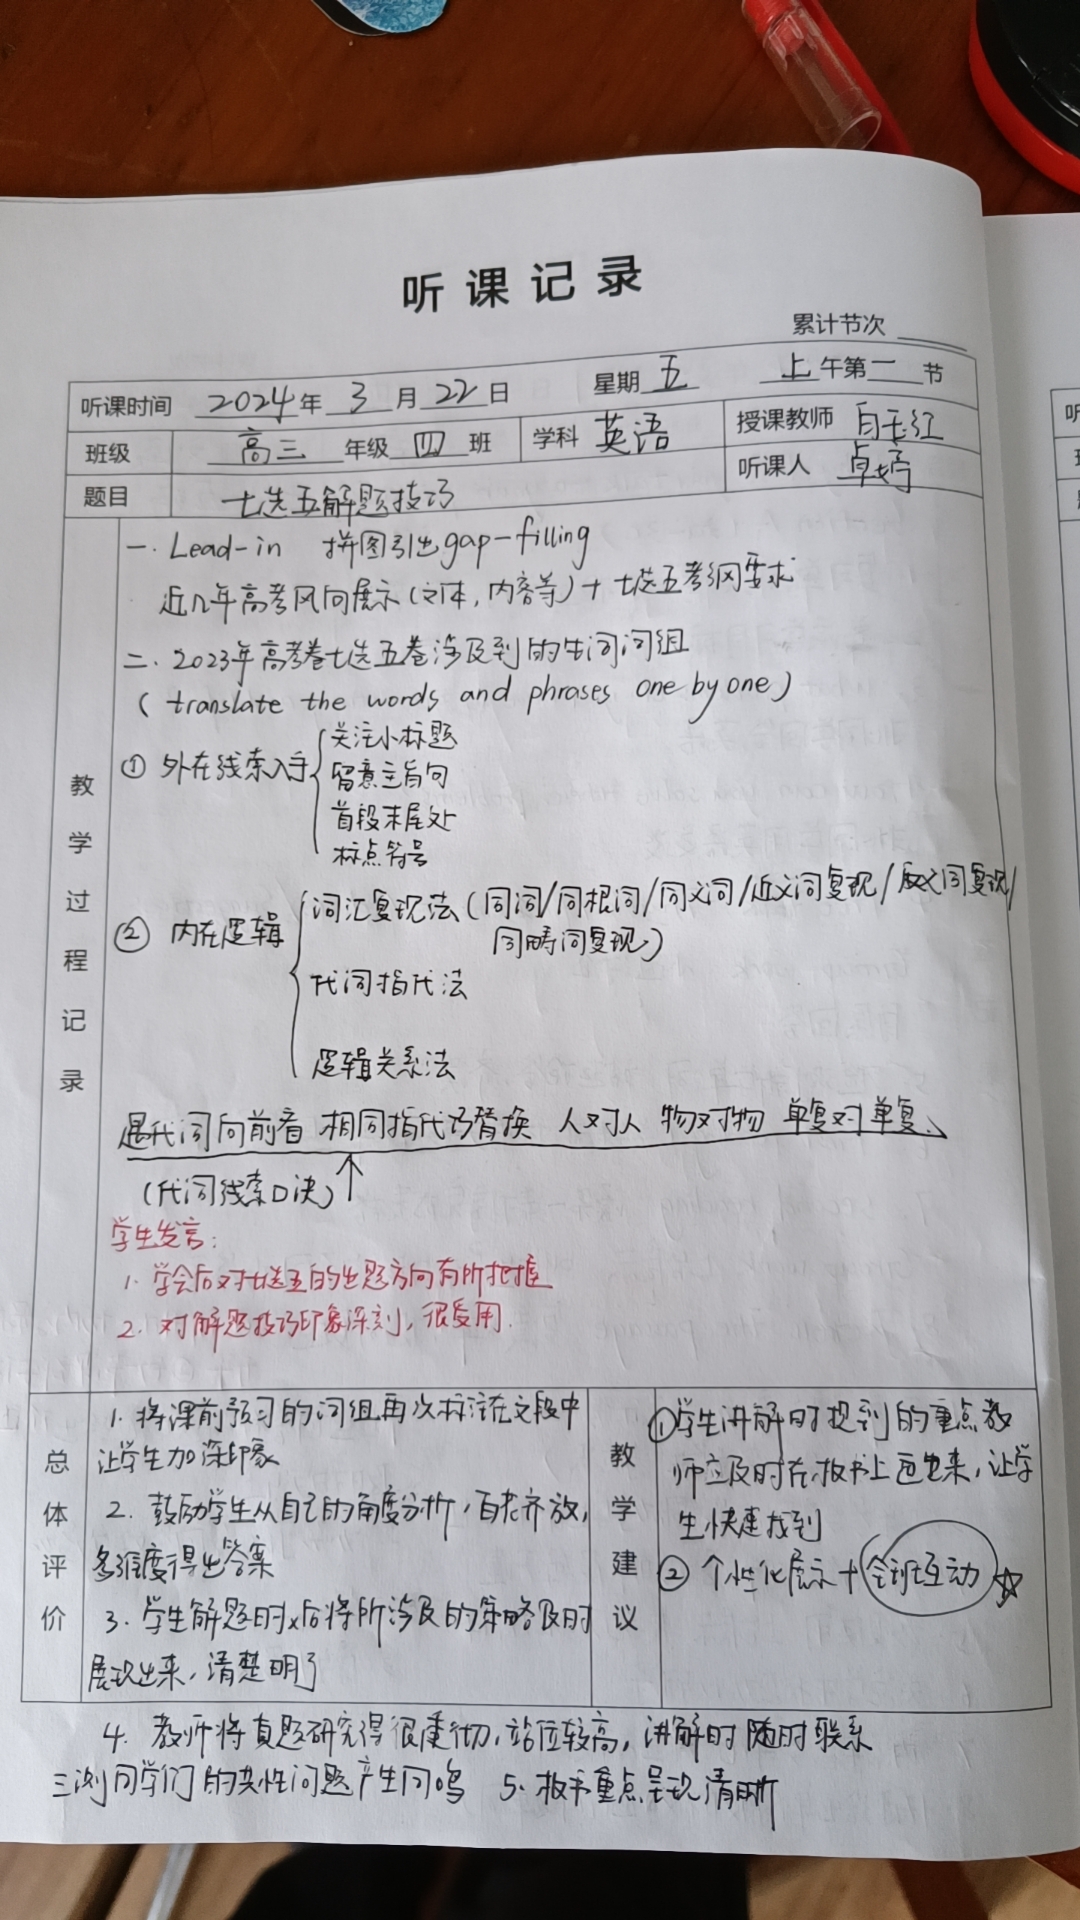 听课记录
累计节次
听课时间 2024年 3月22日 星期五 上午第一节
班级 高三年级四班 学科 英语 授课教师 白玉红
题目 七选五解题技巧 听课人 卓婷
教学过程记录
一. Lead-in 拼图引出gap-filling
近几年高考风向展示(文体,内容等)+七选五考纲要求
二. 2023年高考卷七选五卷涉及到的生词词组
( translate the words and phrases one by one )
① 外在线索入手
关注小标题
留意主旨句
首段末尾处
标点符号
② 内在逻辑
词汇复现法(同词/同根词/同义词/近义词复现/反义词复现/
同畴词复现)
代词指代法
逻辑关系法
遇代词向前看 相同指代巧替换 人对人 物对物 单复对单复、
(代词线索口诀)
学生发言:
1. 学会后对七选五的出题方向有所把握
2. 对解题技巧印象深刻,很受用.
总体评价
1. 将课前预习的词组再次标注在文段中
让学生加深印象
2. 鼓励学生从自己的角度分析,百花齐放,
多维度得出答案
3. 学生解题时x后将所涉及的策略及时
展现出来,清楚明了
教学建议
①学生讲解时提到的重点教
师应及时在板书上画出来,让学
生快速找到
② 个性化展示+全班互动
4. 教师将真题研究得很透彻,站位较高,讲解时随时联系
三测同学们的共性问题产生同鸣 5. 板书重点呈现清晰